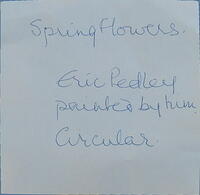 Spring flowers.
Eric Pedley
painted by him
Circular.